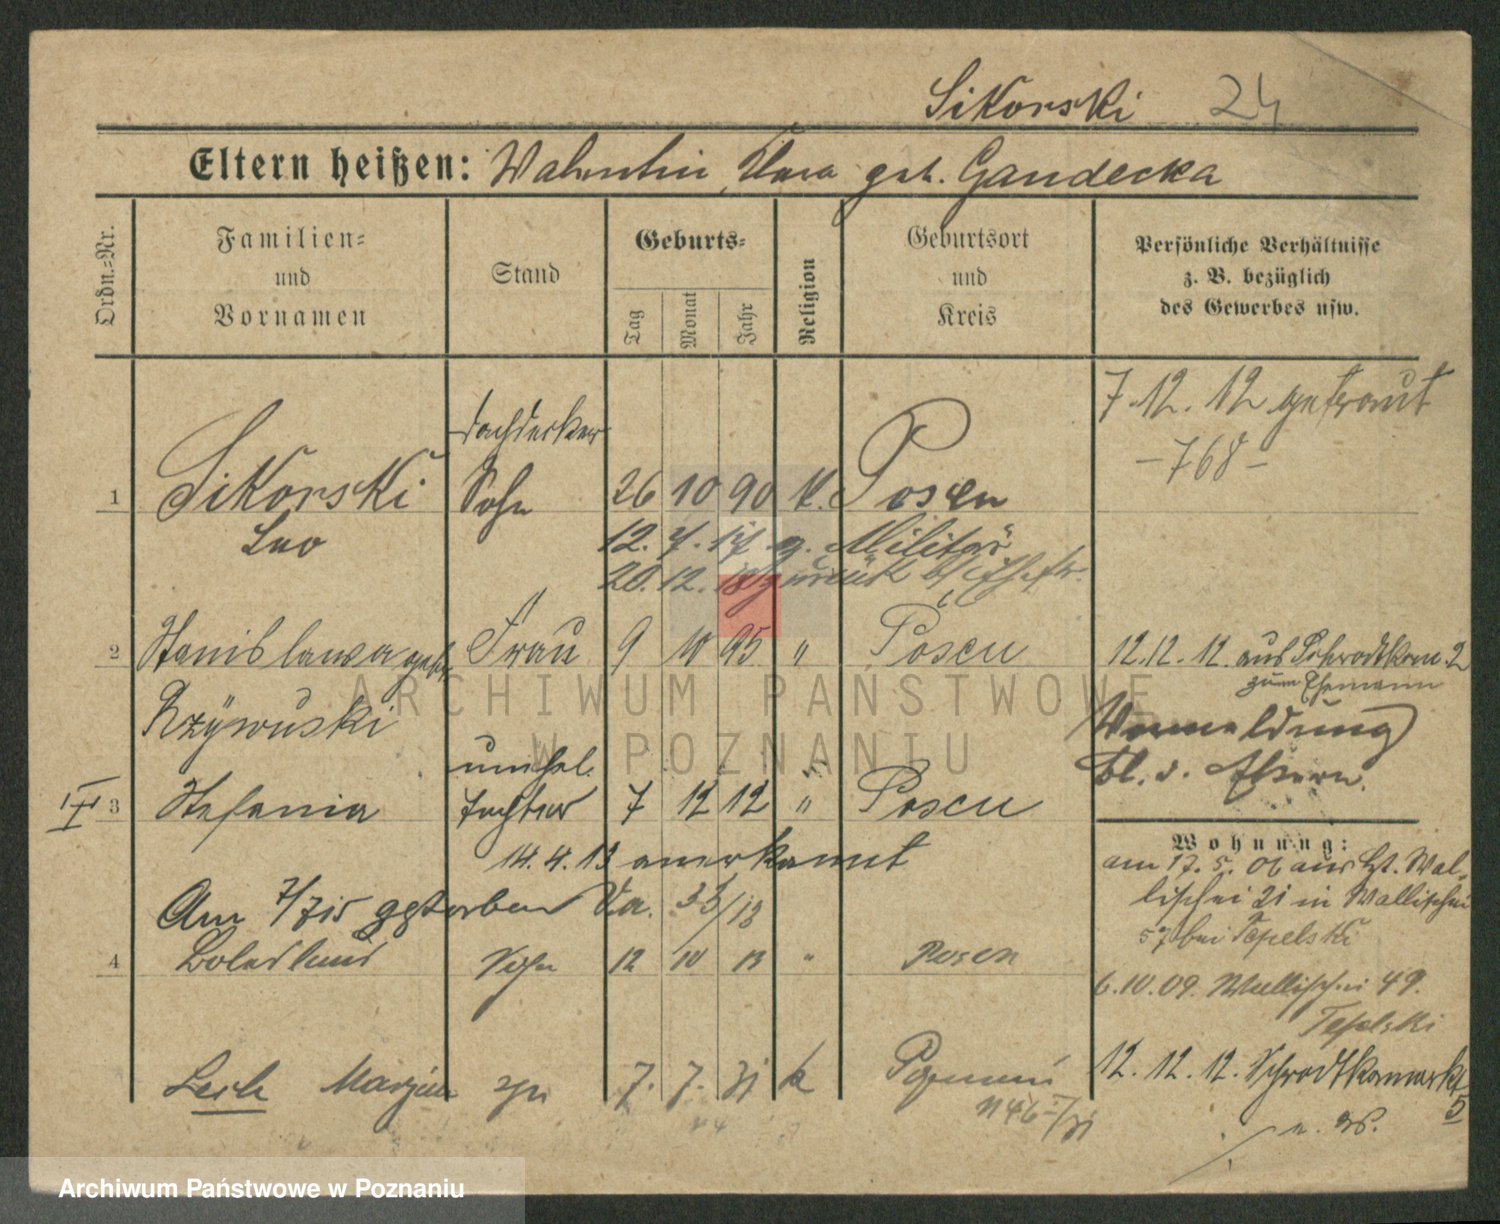 Sikorski 24
Eltern heißen: Valentin, geb. Gandecka
Ordn.=Nr.
Familien=
und
Vornamen
Stand
Geburts=
Tag
Monat
Jahr
Religion
Geburtsort
und
Kreis
Persönliche Verhältnisse
z. B. bezüglich
des Gewerbes usw.
7.12.12 getraut
-768-
Dachdecker
1 Sikorski Sohn 26 10 90 K. Posen
Leo
12. 7. 17 z. Militär
20. 12. 18 zurück
2 Stanislawa geb. Frau 9 10 95 " Posen
12.12.12. aus Schrodkam. 2
zum Ehemann
Rzÿwuski
Vormeldung
bl. d. Eltern.
unehel.
3 Stefania Tochter 7 12 12 " Posen
14.4.13 anerkannt
Wohnung:
am 17.5.06 aus Wal-
lischei 21 in Wallischei
57 bei Tepelski
Am 7/7 15 gestorben Va. 33/13
4 Boleslaus Sohn 12 10 13 " Posen
6.10.09. Wallischei 49.
Tepelski
12.12.12. Schrodkamarkt
5
Lech Marjan syn 7. 7. 31 k Poznań
ARCHIWUM PAŃSTWOWE
W POZNANIU
Archiwum Państwowe w Poznaniu